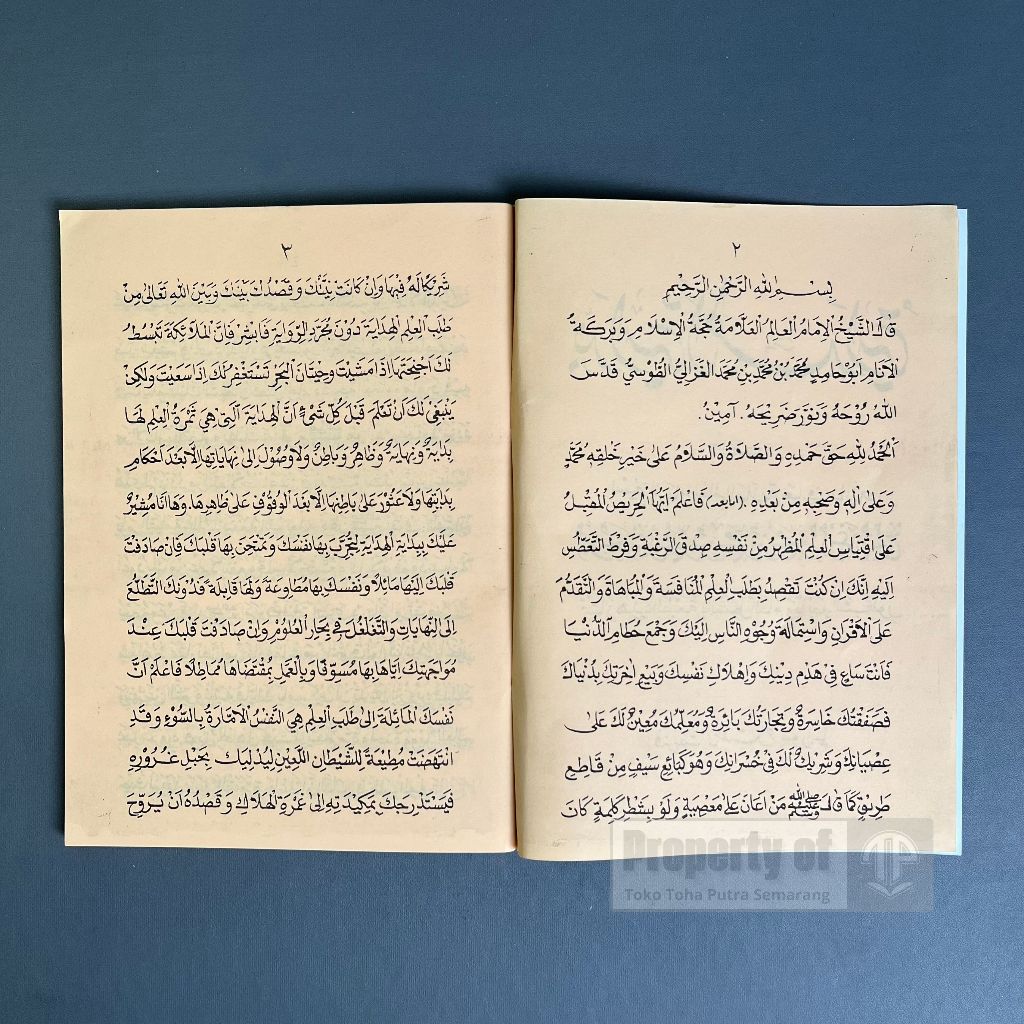 ٢
بِسْمِ اللهِ الرَّحْمٰنِ الرَّحِيْمِ
قَالَ الشَّيْخُ الْإِمَامُ الْعَالِمُ الْعَلَّامَةُ حُجَّةُ الْإِسْلَامِ وَبَرَكَةُ
الْاَنَامِ اَبُوْحَامِدٍ مُحَمَّدُ بْنُ مُحَمَّدِ بْنِ مُحَمَّدِ الْغَزَالِيُّ الطُّوْسِيُّ قَدَّسَ
اللهُ رُوْحَهُ وَنَوَّرَ ضَرِيْحَهُ. آمِيْنْ.
اَلْحَمْدُ لِلّٰهِ حَقَّ حَمْدِهِ وَالصَّلَاةُ وَالسَّلَامُ عَلٰى خَيْرِ خَلْقِهِ مُحَمَّدٍ
وَعَلٰى اٰلِهِ وَصَحْبِهِ مِنْ بَعْدِهِ. (امابعد) فَاعْلَمْ اَيُّهَا الْحَرِيْصُ الْمُقْبِلُ
عَلَى اقْتِبَاسِ الْعِلْمِ الْمُظْهِرُ مِنْ نَفْسِهِ صِدْقَ الرَّغْبَةِ وَفَرْطَ التَّعَطُّشِ
اِلَيْهِ اِنَّكَ اِنْ كُنْتَ تَقْصِدُ بِطَلَبِ الْعِلْمِ الْمُنَافَسَةَ وَالْمُبَاهَاةَ وَالتَّقَدُّمَ
عَلَى الْاَقْرَانِ وَاسْتِمَالَةَ وُجُوْهِ النَّاسِ اِلَيْكَ وَجَمْعَ حُطَامِ الدُّنْيَا
فَاَنْتَ سَاعٍ فِيْ هَدْمِ دِيْنِكَ وَاِهْلَاكِ نَفْسِكَ وَبَيْعِ اٰخِرَتِكَ بِدُنْيَاكَ
فَصَفْقَتُكَ خَاسِرَةٌ وَتِجَارَتُكَ بَائِرَةٌ وَمُعَلِّمُكَ مُعِيْنٌ لَكَ عَلٰى
عِصْيَانِكَ وَشَرِيْكٌ لَكَ فِيْ خُسْرَانِكَ وَهُوَ كَبَائِعِ سَيْفٍ مِنْ قَاطِعِ
طَرِيْقٍ كَمَا قَالَ ﷺ مَنْ اَعَانَ عَلٰى مَعْصِيَةٍ وَلَوْ بِشَطْرِ كَلِمَةٍ كَانَ
٣
شَرِيْكًا لَهُ فِيْهَا وَاِنْ كَانَتْ نِيَّتُكَ وَقَصْدُكَ بَيْنَكَ وَبَيْنَ اللهِ تَعَالٰى مِنْ
طَلَبِ الْعِلْمِ الْهِدَايَةَ دُوْنَ مُجَرَّدِ الرِّوَايَةِ فَابْشِرْ فَاِنَّ الْمَلَائِكَةَ تَبْسُطُ
لَكَ اَجْنِحَتَهَا اِذَا مَشَيْتَ وَحِيْتَانَ الْبَحْرِ تَسْتَغْفِرُ لَكَ اِذَا سَعَيْتَ وَلٰكِنْ
يَنْبَغِيْ لَكَ اَنْ تَعْلَمَ قَبْلَ كُلِّ شَيْءٍ اَنَّ الْهِدَايَةَ الَّتِيْ هِيَ ثَمْرَةُ الْعِلْمِ لَهَا
بِدَايَةٌ وَنِهَايَةٌ وَظَاهِرٌ وَبَاطِنٌ وَلَا وُصُوْلَ اِلٰى نِهَايَاتِهَا اِلَّا بَعْدَ اَحْكَامِ
بِدَايَتِهَا وَلَا عُثُوْرَ عَلٰى بَاطِنِهَا اِلَّا بَعْدَ الْوُقُوْفِ عَلٰى ظَاهِرِهَا. وَهَا اَنَا مُشِيْرٌ
عَلَيْكَ بِبِدَايَةِ الْهِدَايَةِ لِتُجَرِّبَ بِهَا نَفْسَكَ وَتَمْتَحِنَ بِهَا قَلْبَكَ فَاِنْ صَادَفْتَ
قَلْبَكَ اِلَيْهَا مَائِلًا وَنَفْسَكَ بِهَا مُطَاوِعَةً وَلَهَا قَابِلَةً فَدُوْنَكَ التَّطَلُّعَ
اِلَى النِّهَايَاتِ وَالتَّغَلْغُلَ فِيْ بِحَارِ الْعُلُوْمِ وَاِنْ صَادَفْتَ قَلْبَكَ عِنْدَ
مُوَاجَهَتِكَ اِيَّاهَا بِهَا مُسَوِّفًا وَبِالْعَمَلِ بِمُقْتَضَاهَا مُمَاطِلًا فَاعْلَمْ اَنَّ
نَفْسَكَ الْمَائِلَةَ اِلٰى طَلَبِ الْعِلْمِ هِيَ النَّفْسُ الْاَمَّارَةُ بِالسُّوْءِ وَقَدِ
انْتَهَضَتْ مُطِيْعَةً لِلشَّيْطَانِ اللَّعِيْنِ لِيُدْلِيَكَ بِحَبْلِ غُرُوْرِهِ
فَيَسْتَدْرِجَكَ بِمَكِيْدَتِهِ اِلٰى غَمْرَةِ الْهَلَاكِ وَقَصْدُهُ اَنْ يُرَوِّجَ
Property of
Toko Toha Putra Semarang